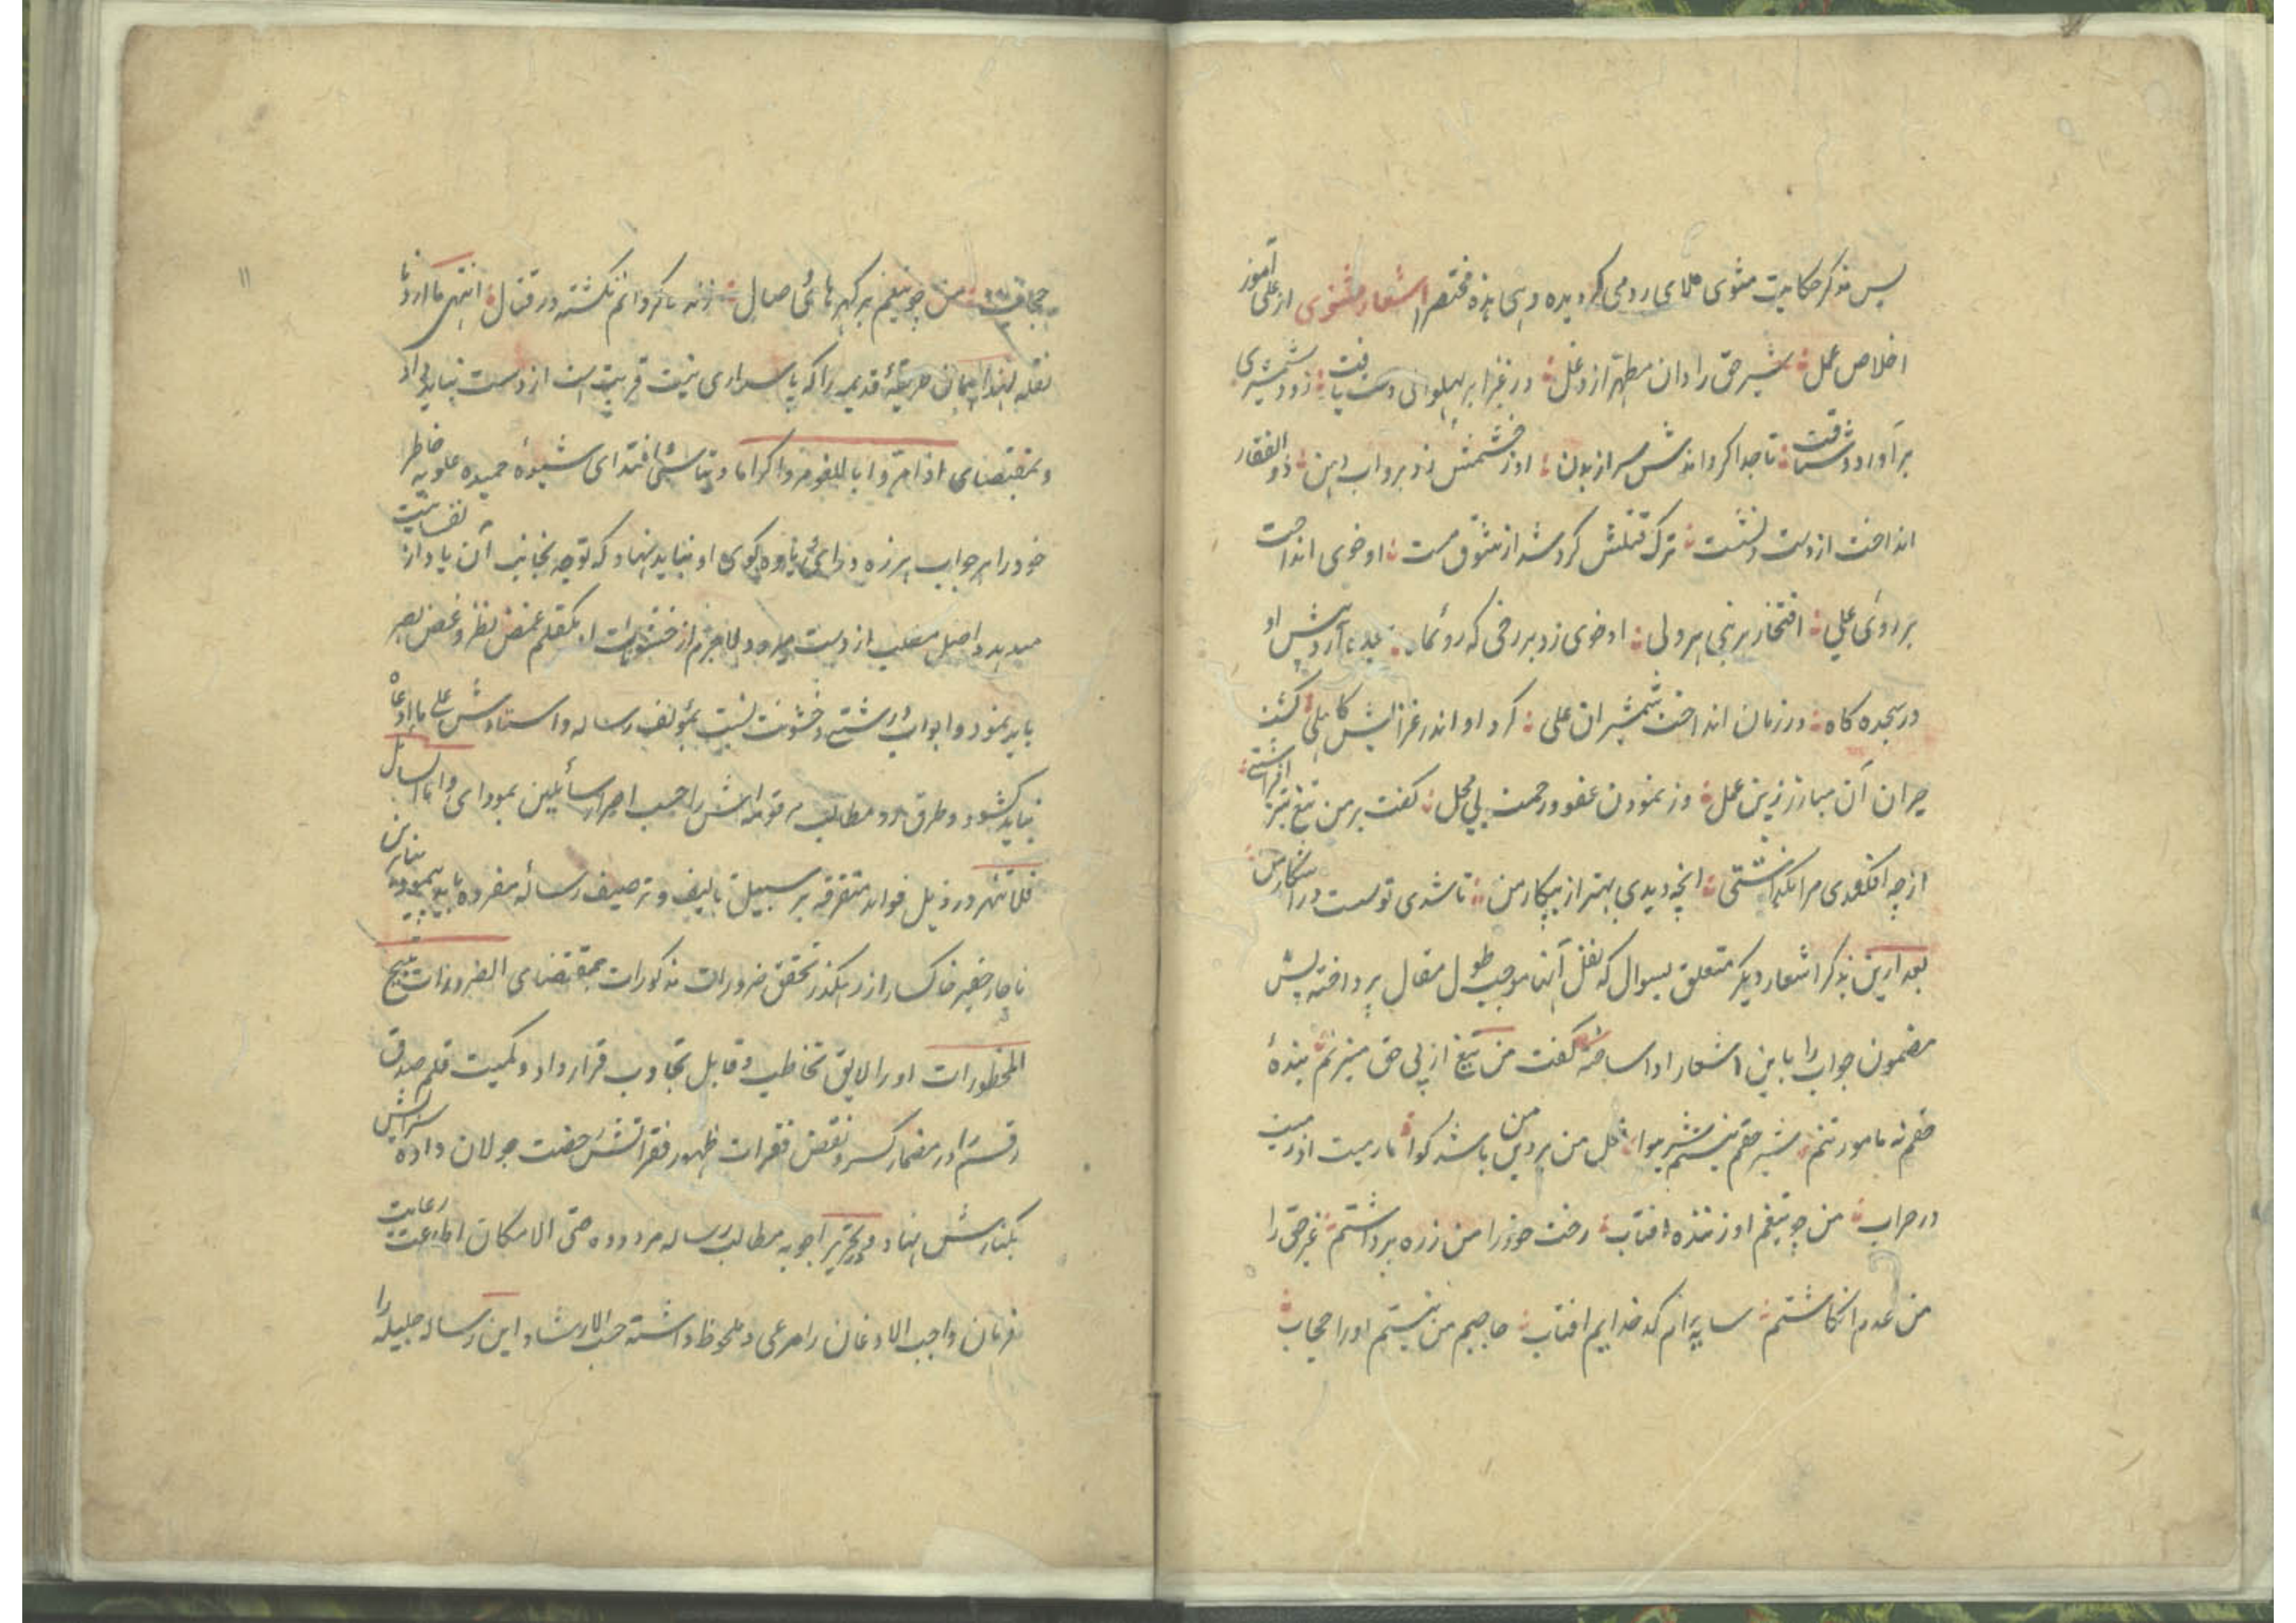 پس بذکر حکایت مثنوی ملای رومی گردیده وهی هذه مختصرا اشعار مثنوی از علی آموز
اخلاص عمل شیر حق را دان مطهر از دغل در غزا بر پهلوانی دست یافت زود شمشیری
برآورد و شتافت تا جدا گرداندش سر از بدن او ز خشمش زد برو آب دهن ذوالفقار
انداخت از دست و نشست ترک قتلش کرد شد از شوق مست او خوی انداخت
بر روئی علی افتخار هر نبی هر ولی او خوی زد بر رخی که روئ ماه سجده آرد پیش او
در سجده گاه در زمان انداخت شمشیر ان علی کرد او اندر غزایش کاهلی گشت
حیران آن مبارز زین عمل وز نمودن عفو و رحمت بی محل گفت بر من تیغ تیز افراشتی
از چه افکندی مرا بگذاشتی انچه دیدی بهتر از پیکار من تا شدی تو سست در اشکار من
بعد ازین بذکر اشعار دیگر متعلق بسوال که نقل آنها موجب طول مقال پرداخته پس
مضمون جواب را باین اشعار ادا ساخته گفت من تیغ از پی حق میزنم بنده
حقم نه مامور تنم شیر حقم نیستم شیر هوا فعل من بر دین من باشد گوا ما رمیت اذ رمیت
در حراب من چو تیغم او زننده افتاب رخت خود را من ز ره برداشتم غیر حق را
من عدم انگاشتم سایه ام که خدایم افتاب حاجبم من نیستم او را حجاب
۱۱
من چو تیغم پر گهر هائی وصال زنده گردانم نه کشته در قتال انتهی ما اردنا
نقله لهذا همان طریقه قدیم را که پاسداری نیت قربت است از دست نباید داد
وبمقتضای اذا مروا باللغو مروا کراما و بتاسی اقتدای شیوه حمیده علویه خاطر
خود را بر جواب هرزه درائی و یاوه گوی او نباید نهاد که توجه بجانب آن یاد از نفسانیت
میدهد و اصل مطلب از دست میرود لاجرم از خشونات او بکقلم غمض نظر و غض بصر
باید نمود و ابواب درشتی و خشونت نسبت بمؤلف رساله و استادش علی ما ادعاه
نباید گشود و طرق رد مطالب مرقومه اش را حسب اصرار سائلین بمودای واما السائل
فلا تنهر در ذیل فواید متفرقه بر سبیل تالیف و ترصیف رساله مفرده باید پیمود بنابرین
ناچار حقیر خاکسار از رهگذر تحقق ضرورات مذکورات بمقتضای الضرورات تبیح
المحظورات او را لایق تخاطب و قابل تجاوب قرار داد و کمیت قلم صدق
رقم را در مضمار کسر و نقض فقرات ظهور فقراتش رخصت جولان داده سزایش
بکنارش نهاد و در تحریر اجوبه مطالب رساله مردوده حتی الامکان اطاعت رعایت
فرمان واجب الاذعان را مرعی و ملحوظ داشته حسب الارشاد این رساله جلیله را